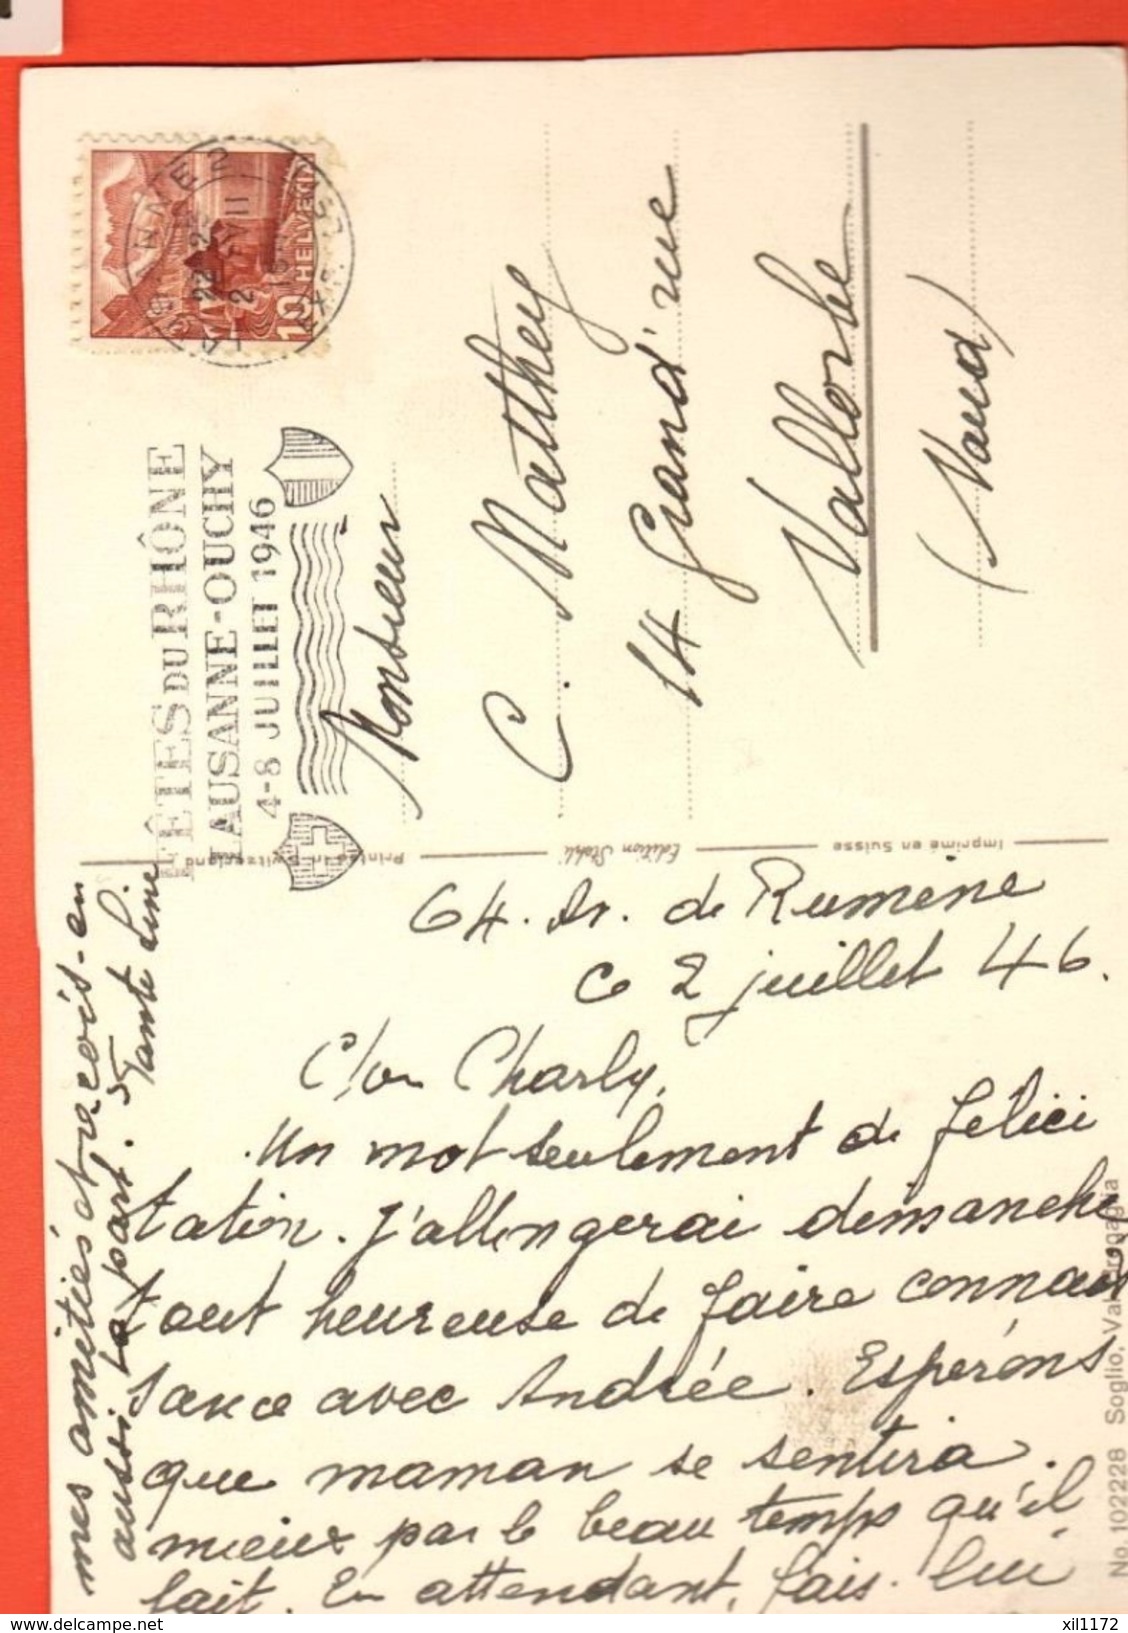 HELVETIA
10
FÊTES DU RHÔNE
LAUSANNE-OUCHY
4-8 JUILLET 1946
Monsieur
C. Matthey
14 Grand'rue
Vallorbe
(Vaud)
Printed in Switzerland
Edition Stehli
Imprimé en Suisse
64. Av. de Rumine
ce 2 juillet 46.
Charly,
Un mot seulement de félici
tation. J'allongerai dimanche
tout heureuse de faire connais
sance avec Andrée. Espérons
que maman se sentira
mieux par le beau temps qu'il
fait. En attendant, fais-lui
mes amitiés et reçois-en
aussi ta part. Tante Line
No. 102228 Soglio, Val Bregaglia
delcampe.net
xil1172